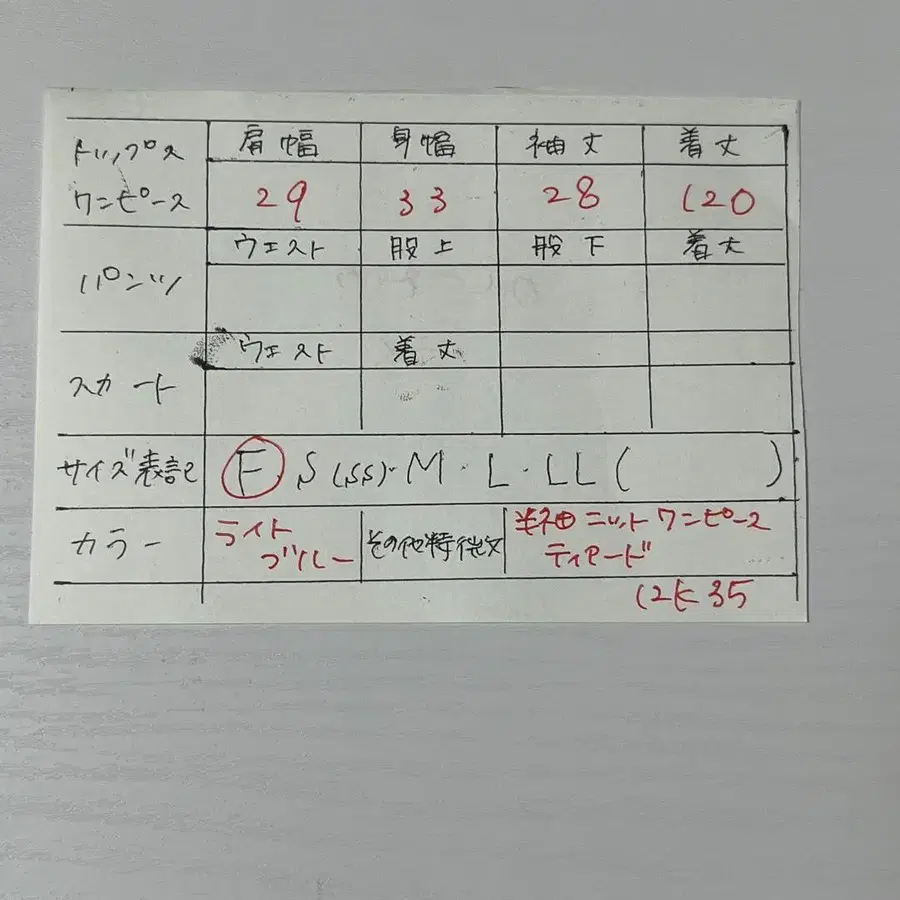 トップス 肩幅 身幅 袖丈 着丈
ワンピース 29 33 28 120
ウエスト 股上 股下 着丈
パンツ
ウエスト 着丈
スカート
サイズ表記 F S(SS)・M・L・LL( )
カラー ライト ブルー その他特徴 半袖ニットワンピース
ティアード
35